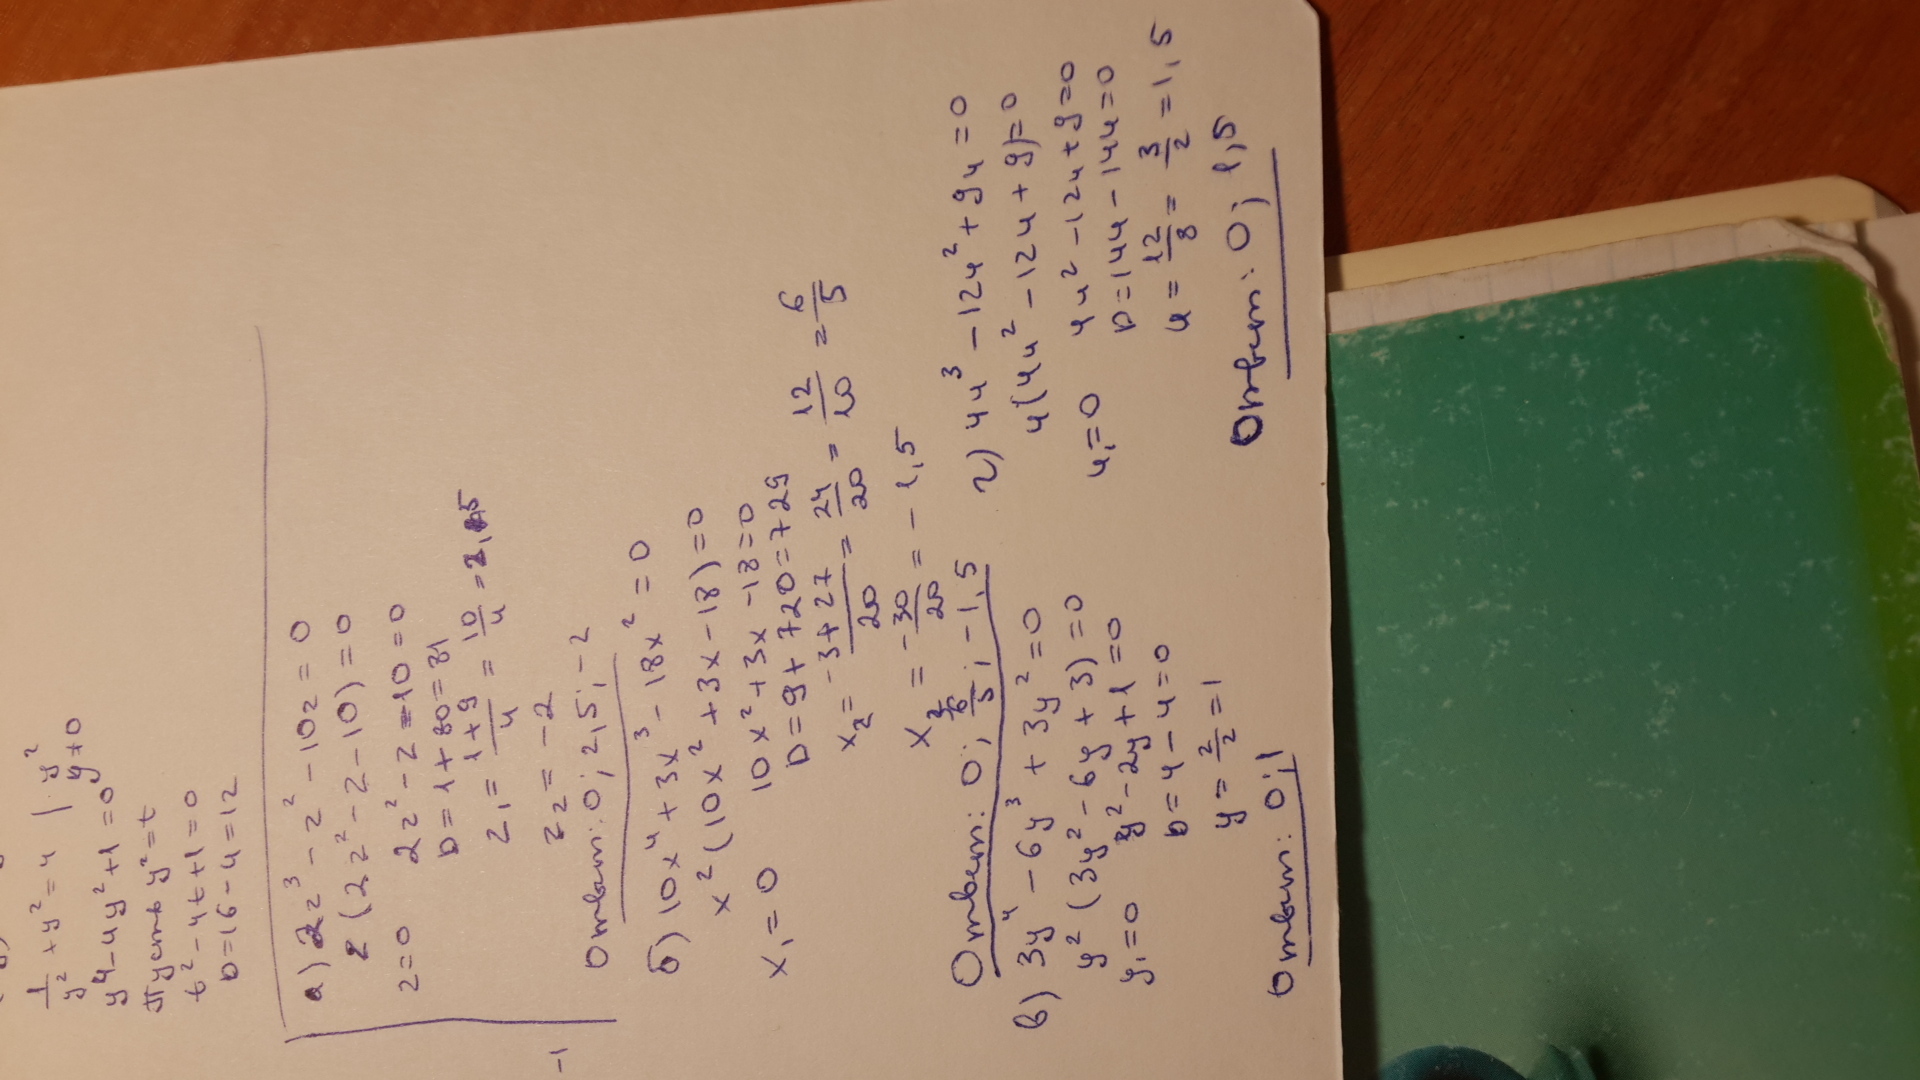 1/y² + y² = 4 | · y²
y ≠ 0
y⁴ - 4y² + 1 = 0
Пусть y² = t
t² - 4t + 1 = 0
D = 16 - 4 = 12
а) 2z³ - z² - 10z = 0
z(2z² - z - 10) = 0
z = 0 2z² - z - 10 = 0
D = 1 + 80 = 81
z₁ = (1+9)/4 = 10/4 = 2,5
z₂ = -2
Ответ: 0; 2,5; -2
-1
б) 10x⁴ + 3x³ - 18x² = 0
x²(10x² + 3x - 18) = 0
x₁ = 0 10x² + 3x - 18 = 0
D = 9 + 720 = 729
x₂ = (-3+27)/20 = 24/20 = 12/10 = 6/5
x₂ = -30/20 = -1,5
Ответ: 0; 6/5; -1,5
в) 3y⁴ - 6y³ + 3y² = 0
y²(3y² - 6y + 3) = 0
y₁ = 0 y² - 2y + 1 = 0
D = 4 - 4 = 0
y = 2/2 = 1
Ответ: 0; 1
г) 4u³ - 12u² + 9u = 0
u(4u² - 12u + 9) = 0
u₁ = 0 4u² - 12u + 9 = 0
D = 144 - 144 = 0
u = 12/8 = 3/2 = 1,5
Ответ: 0; 1,5